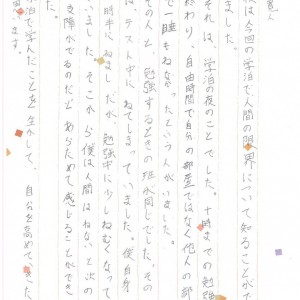 は今回の学泊で人間の限界について知ることができ
ました。
それは、学泊の夜のことでした。十時までの勉強
終わり、自由時間で自分の部屋ではなく他人の部
で一睡もねなかったという人がいました。
ての人と、勉強するときの班が同じでした。その
は、テスト中にねてしまっていました。僕自身
時半にねましたが、勉強中に少しねむくなって
いました。そこから僕は人間はねないと次の
支障がでるのだとあらためて感じることができ
泊で学んだことを生かして、自分を高めて、
ます。